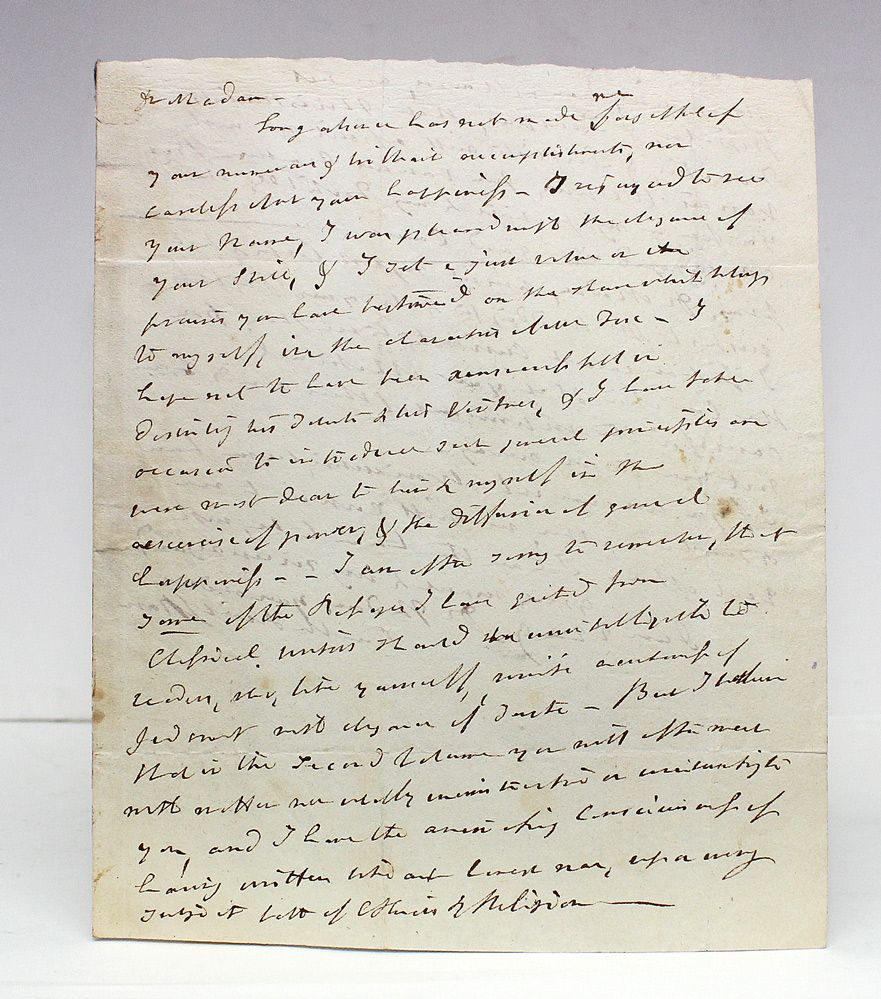 Dr Madam -
Long absence has not made me forgetful of
your numerous & brilliant accomplishments, nor
careless about your happiness - I rejoyced to see
your Name, I was pleased with the elegance of
your Stile, & I set a just value on the
praises you have bestowed on the share which belongs
to myself, in the characters of Mr Fox - I
hope not to have been unsuccessful in
describing his talents & his Virtues, & I have taken
occasion to introduce such general principles as
were most dear to him & myself in the
exercise of power, & the diffusion of general
happiness - - I am often sorry to remember, that
some of the Passages I have quoted from
Classical writers should be unintelligible to
readers, who, like yourself, unite soundness of
Judgment with elegance of Taste - But I believe
that in the Second Volume you will often meet
with matter not wholly uninstructive or uninteresting to
you, and I have the consciousness of
having written like an honest man, upon every
subject both of Ethics & Religion